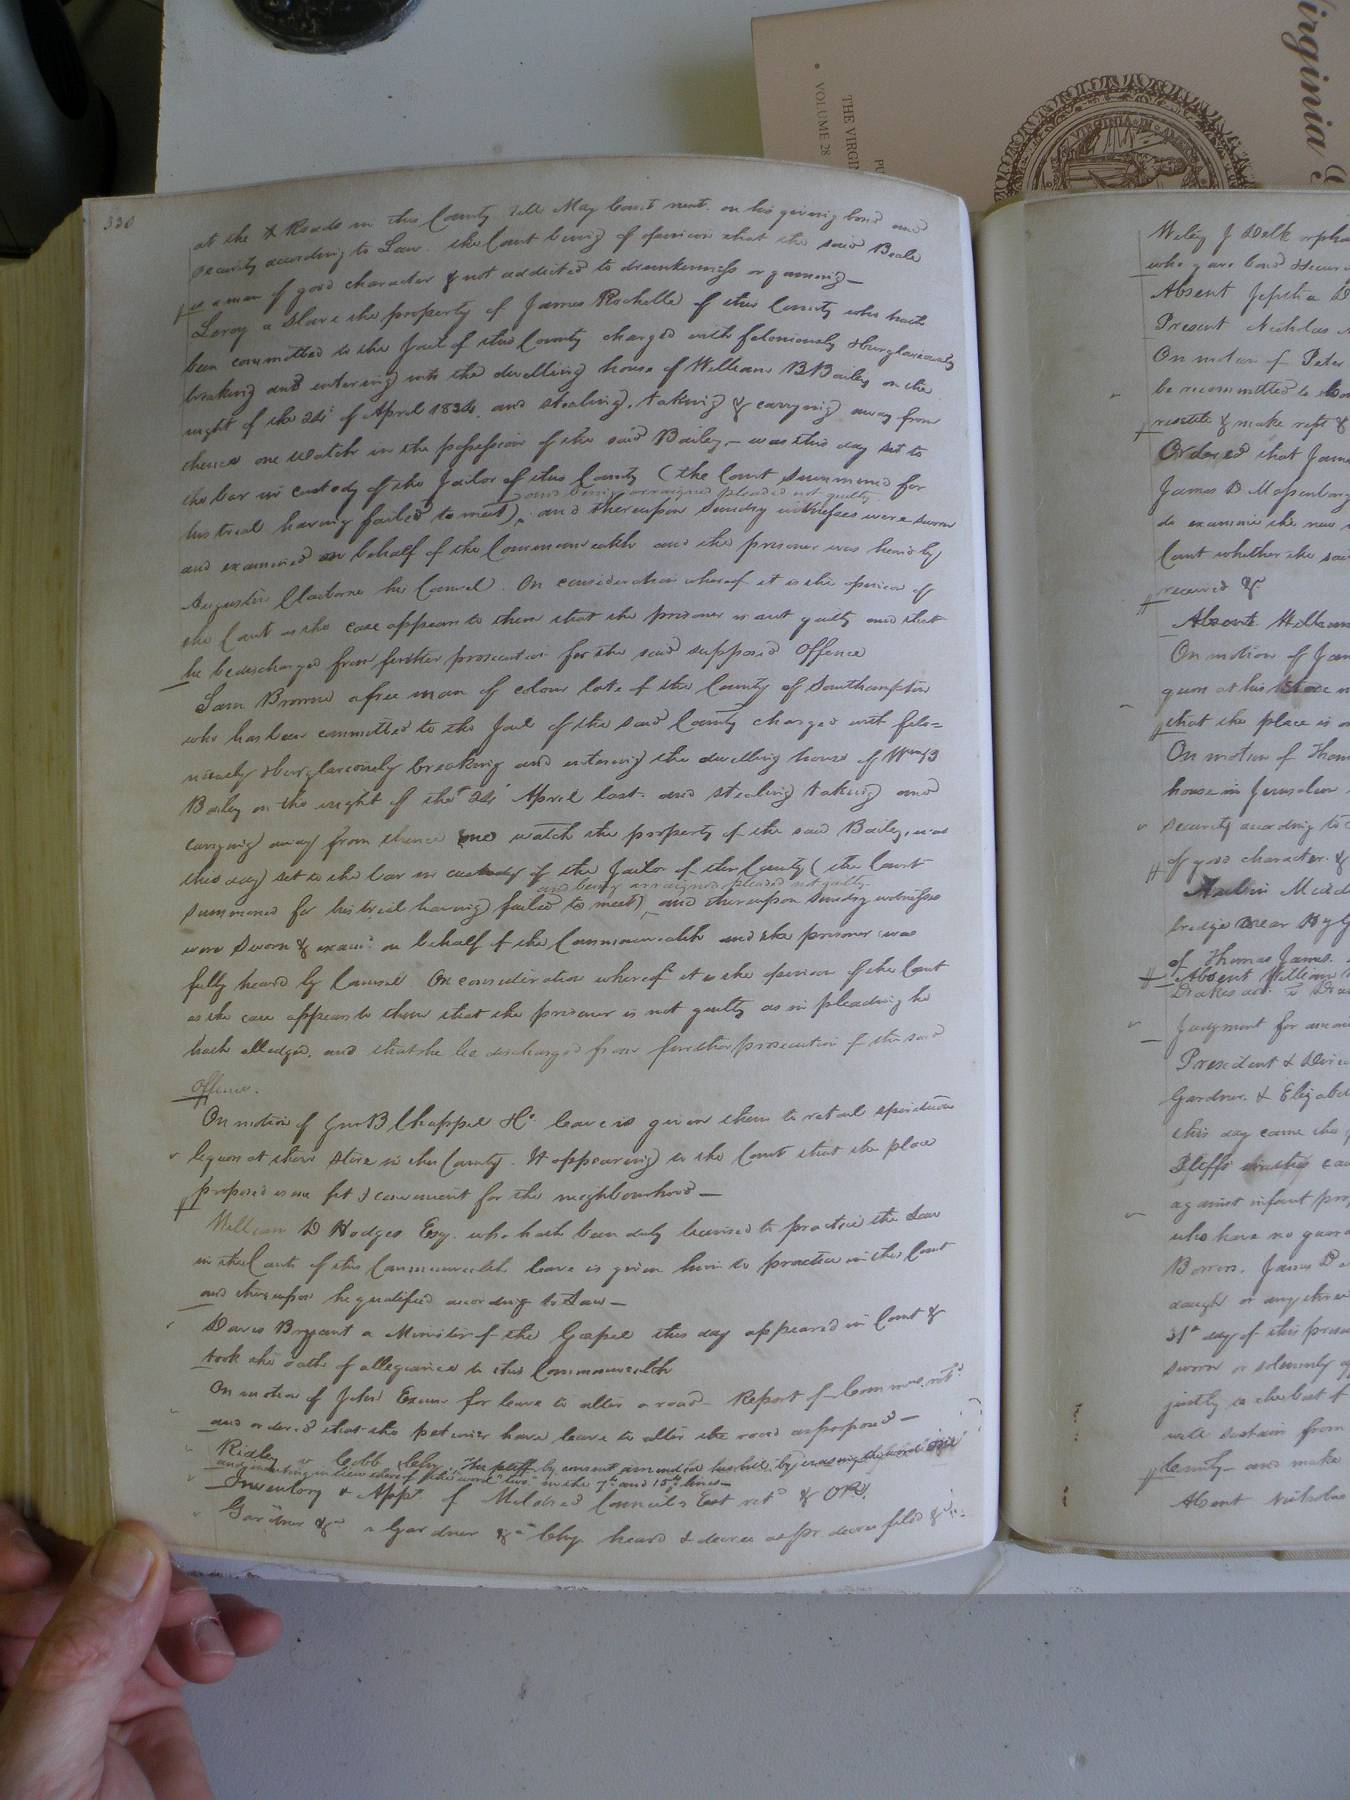 330
at the X Roads in this County till May Court next. on his giving bond and
security according to Law. the Court being of opinion that the said Beale
is a man of good character & not addicted to drunkenness or gameing—
Leroy a slave the property of James Rochelle of this County who hath
been committed to the Jail of this County charged with feloniously & burglariously
breaking and entering into the dwelling house of William B Bailey on the
night of the 24th of April 1834. and stealing, taking & carrying away from
thence one watch in the possession of the said Bailey,— was this day set to
the bar in custody of the Jailor of this County (the Court summoned for
and being arraigned pleaded not guilty
his trial having failed to meet), and thereupon sundry witnesses were sworn
and examined on behalf of the Commonwealth and the prisoner was heard by
Augustin Claiborne his Counsel. On consideration whereof it is the opinion of
the Court as the case appears to them that the prisoner is not guilty and that
he be discharged from further prosecution for the said supposed Offence
Sam Browne a free man of colour late of the County of Southampton
who has been committed to the Jail of the said County charged with felo=
niously & burglariously breaking and entering the dwelling house of Wm B
Bailey on the night of the 24th April last. and stealing taking and
carrying away from thence one watch the property of the said Bailey, was
this day set to the bar in custody of the Jailor of this County (the Court
and being arraigned pleaded not guilty
summoned for his trial having failed to meet) and thereupon sundry witnesses
were sworn & examd on behalf of the Commonwealth and the prisoner was
fully heard by Counsel. On consideration whereof it is the opinion of the Court
as the case appears to them that the prisoner is not guilty as in pleading he
hath alledged, and that he be discharged from further prosecution of the said
Offence.
On motion of Jno B Chappel & Co leave is given them to retail spiritous
liquors at their store in this County. It appearing to the Court that the place
proposed is one fit & convenient for the neighbourhood—
William D Hodges Esq. who hath been duly licensed to practice the Law
in the Courts of this Commonwealth leave is given him to practice in this Court
and thereupon he qualified according to Law—
Davis Bryant a Minister of the Gospel this day appeared in Court &
took the oath of allegiance to this Commonwealth
On motion of John Exum for leave to alter a road— Report of Commrs. retd
and ordered that the petioner have leave to alter the road as proposed—
Ridley v Cobb Chy. The pltff by consent amended his bill by erasing the word "one"
and inserting in lieu thereof the word "two" in the 7th and 15th lines—
Inventory & Appt of Mildred Council's Est retd & OR.
Gardner &c v Gardner &c Chy heard & decree as pr. decree filed &c
Wiley J Delk orpha
who gave bond & secur
Absent Jeptha D
Present Nicholas
On motion of Peter
be recommitted to
resette & make rept &
Ordered that Jame
James D Massenburg
do examine the new
Court whether the sai
received &c
Absent William
On motion of Jam
quors at his store in
that the place is o
On motion of Thom
house in Jerusalem
security according to
of good character. &
bridge near
of Thomas James.
Absent William
Drakes adr. v Dra
Judgment for amou
President & Direc
Gardner. & Elizabe
this day came the p
Pltffs
against infant
who have no guar
James D
daugh or any three
31st day of this presen
sworn or solemnly af
justly to the best of
will sustain from
County— and make
Absent Nicholas
Virginia
THE VIRGIN
VOLUME 28
VIRGINIA